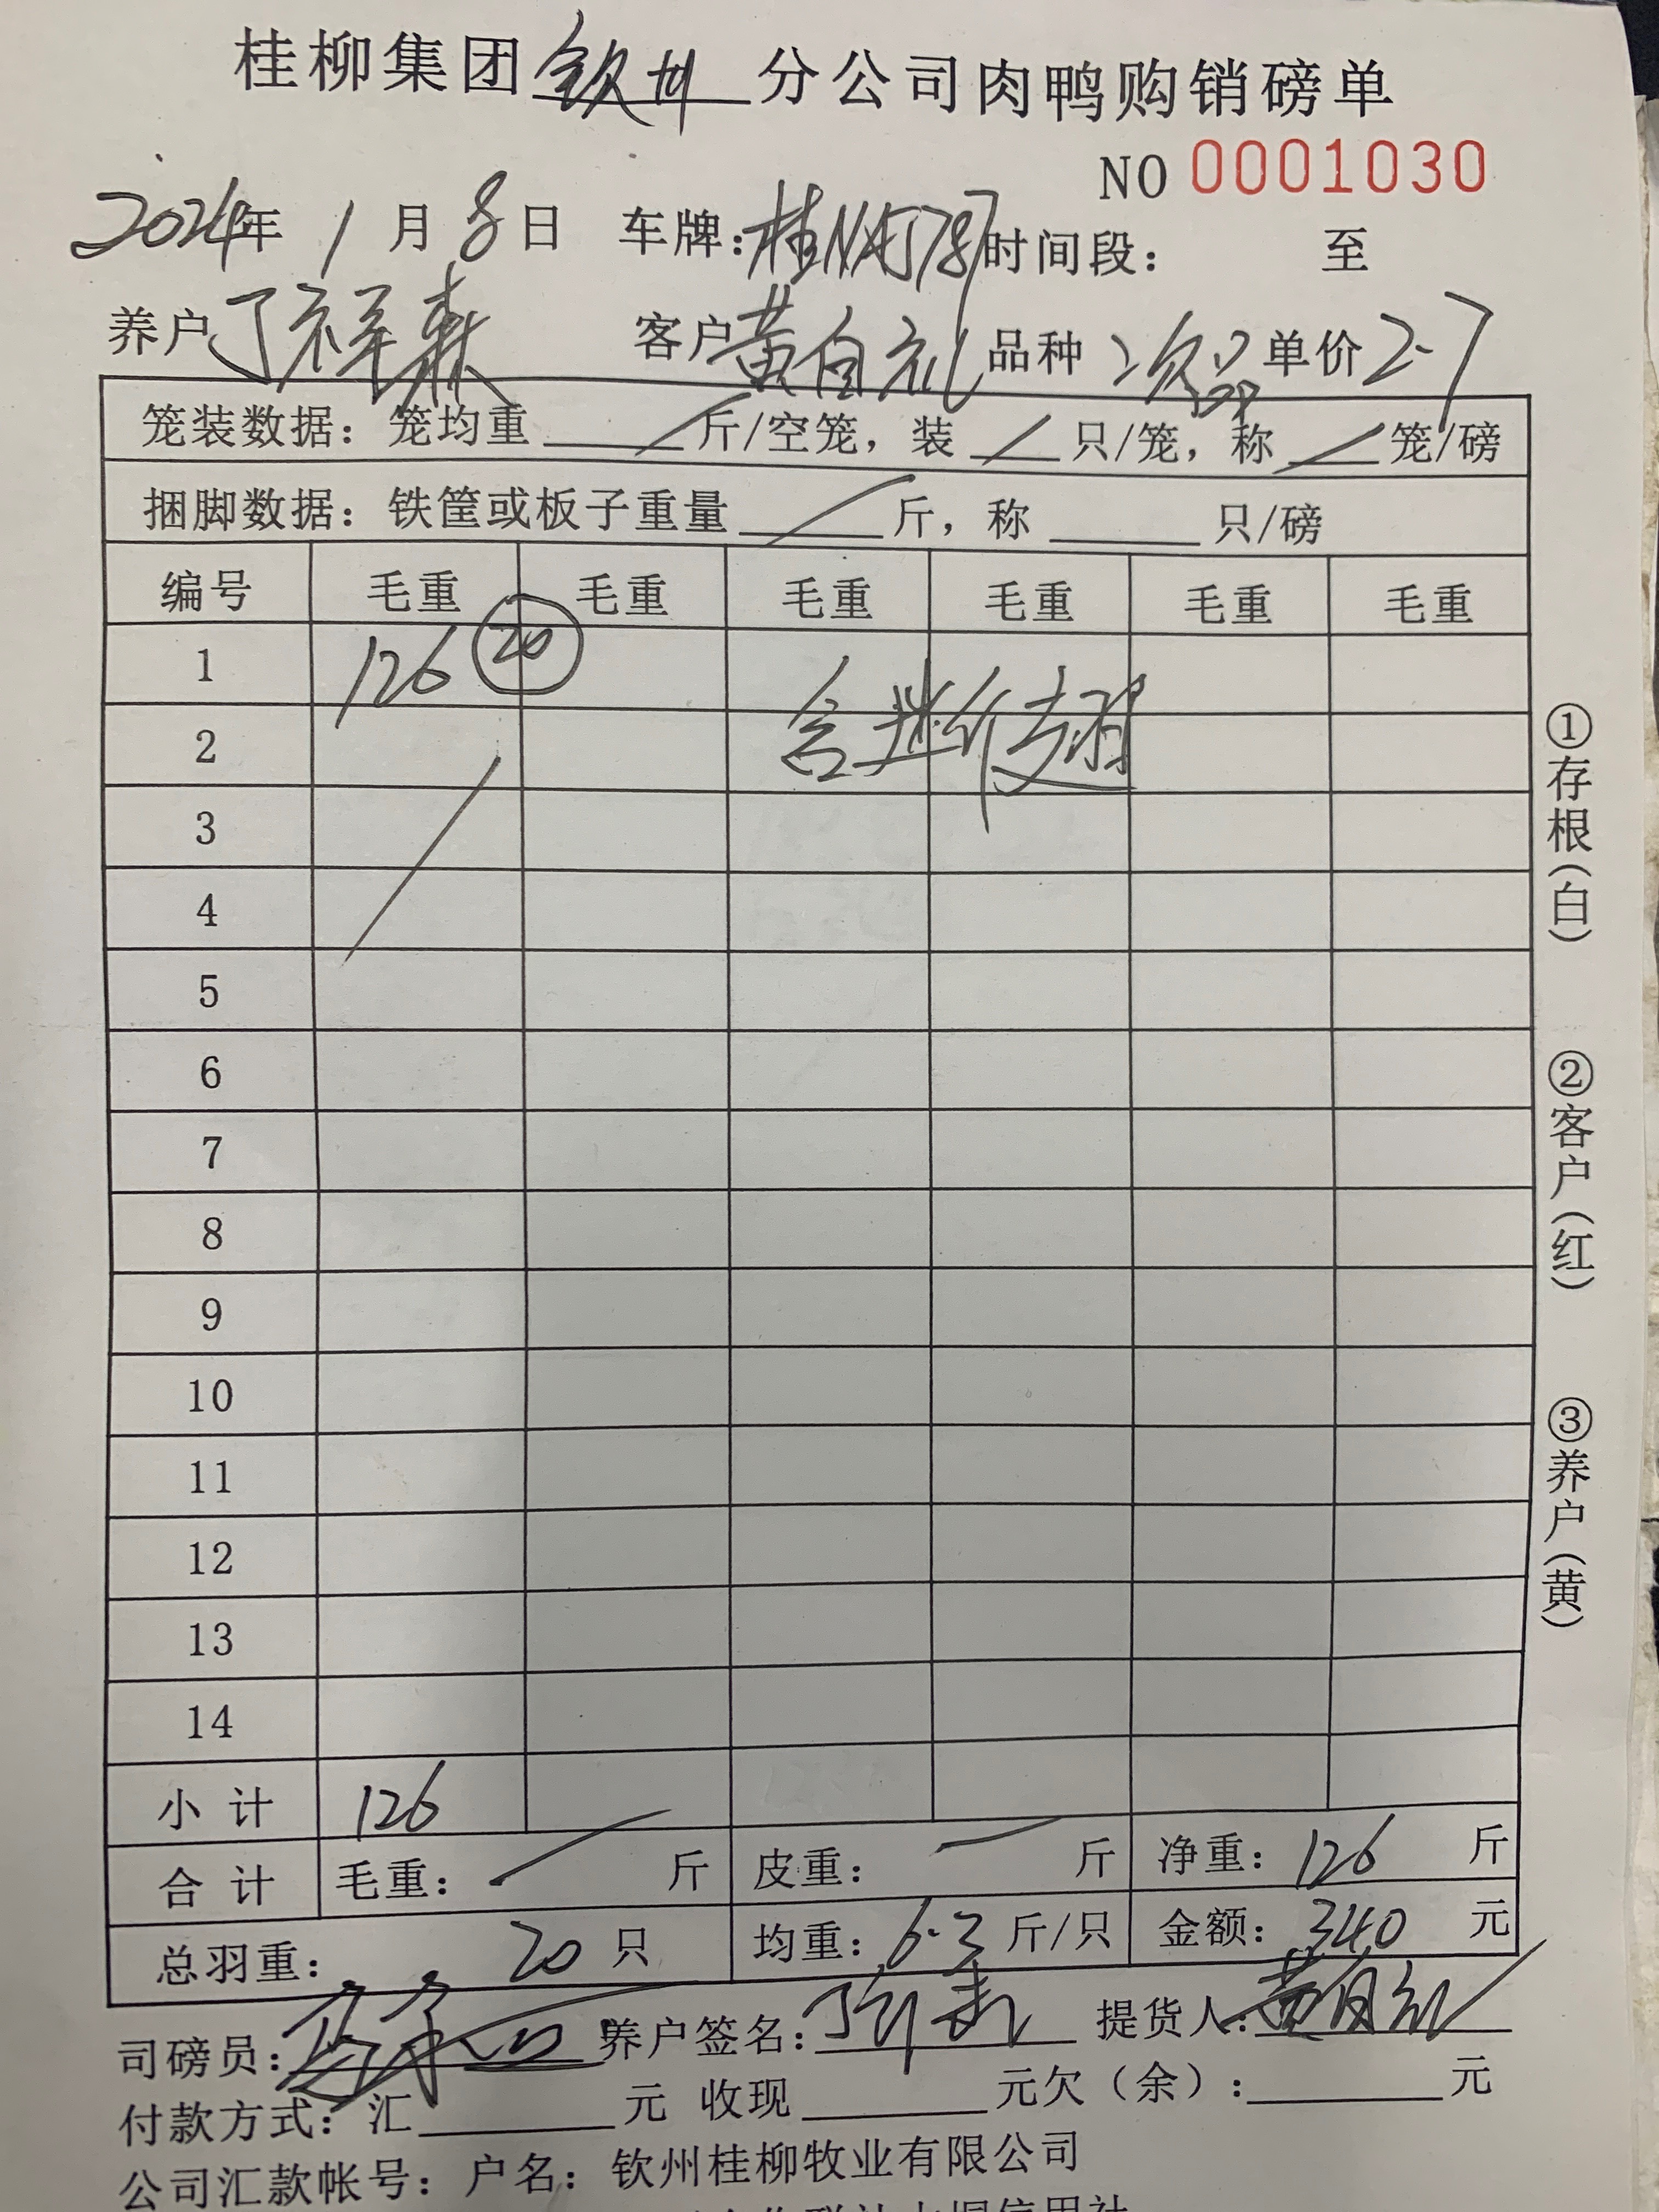 桂柳集团钦州分公司肉鸭购销磅单
NO 0001030
2024年 1 月 8 日 车牌:桂 787 时间段: 至
养户 丁祥森 客户 黄自礼 品种 次品 单价 2.7
笼装数据: 笼均重 / 斤/空笼, 装 / 只/笼, 称 / 笼/磅
捆脚数据: 铁筐或板子重量 / 斤, 称 只/磅
编号 毛重 毛重 毛重 毛重 毛重 毛重
1 126 20
2
3
4
5
6
7
8
9
10
11
12
13
14
小 计 126
合 计 毛重: 斤 皮重: 斤 净重: 126 斤
总羽重: 20 只 均重: 6.3 斤/只 金额: 340 元
司磅员: 养户签名: 提货人: 黄自礼
付款方式: 汇 元 收现 元欠(余): 元
公司汇款帐号: 户名: 钦州桂柳牧业有限公司
①存根(白)
②客户(红)
③养户(黄)